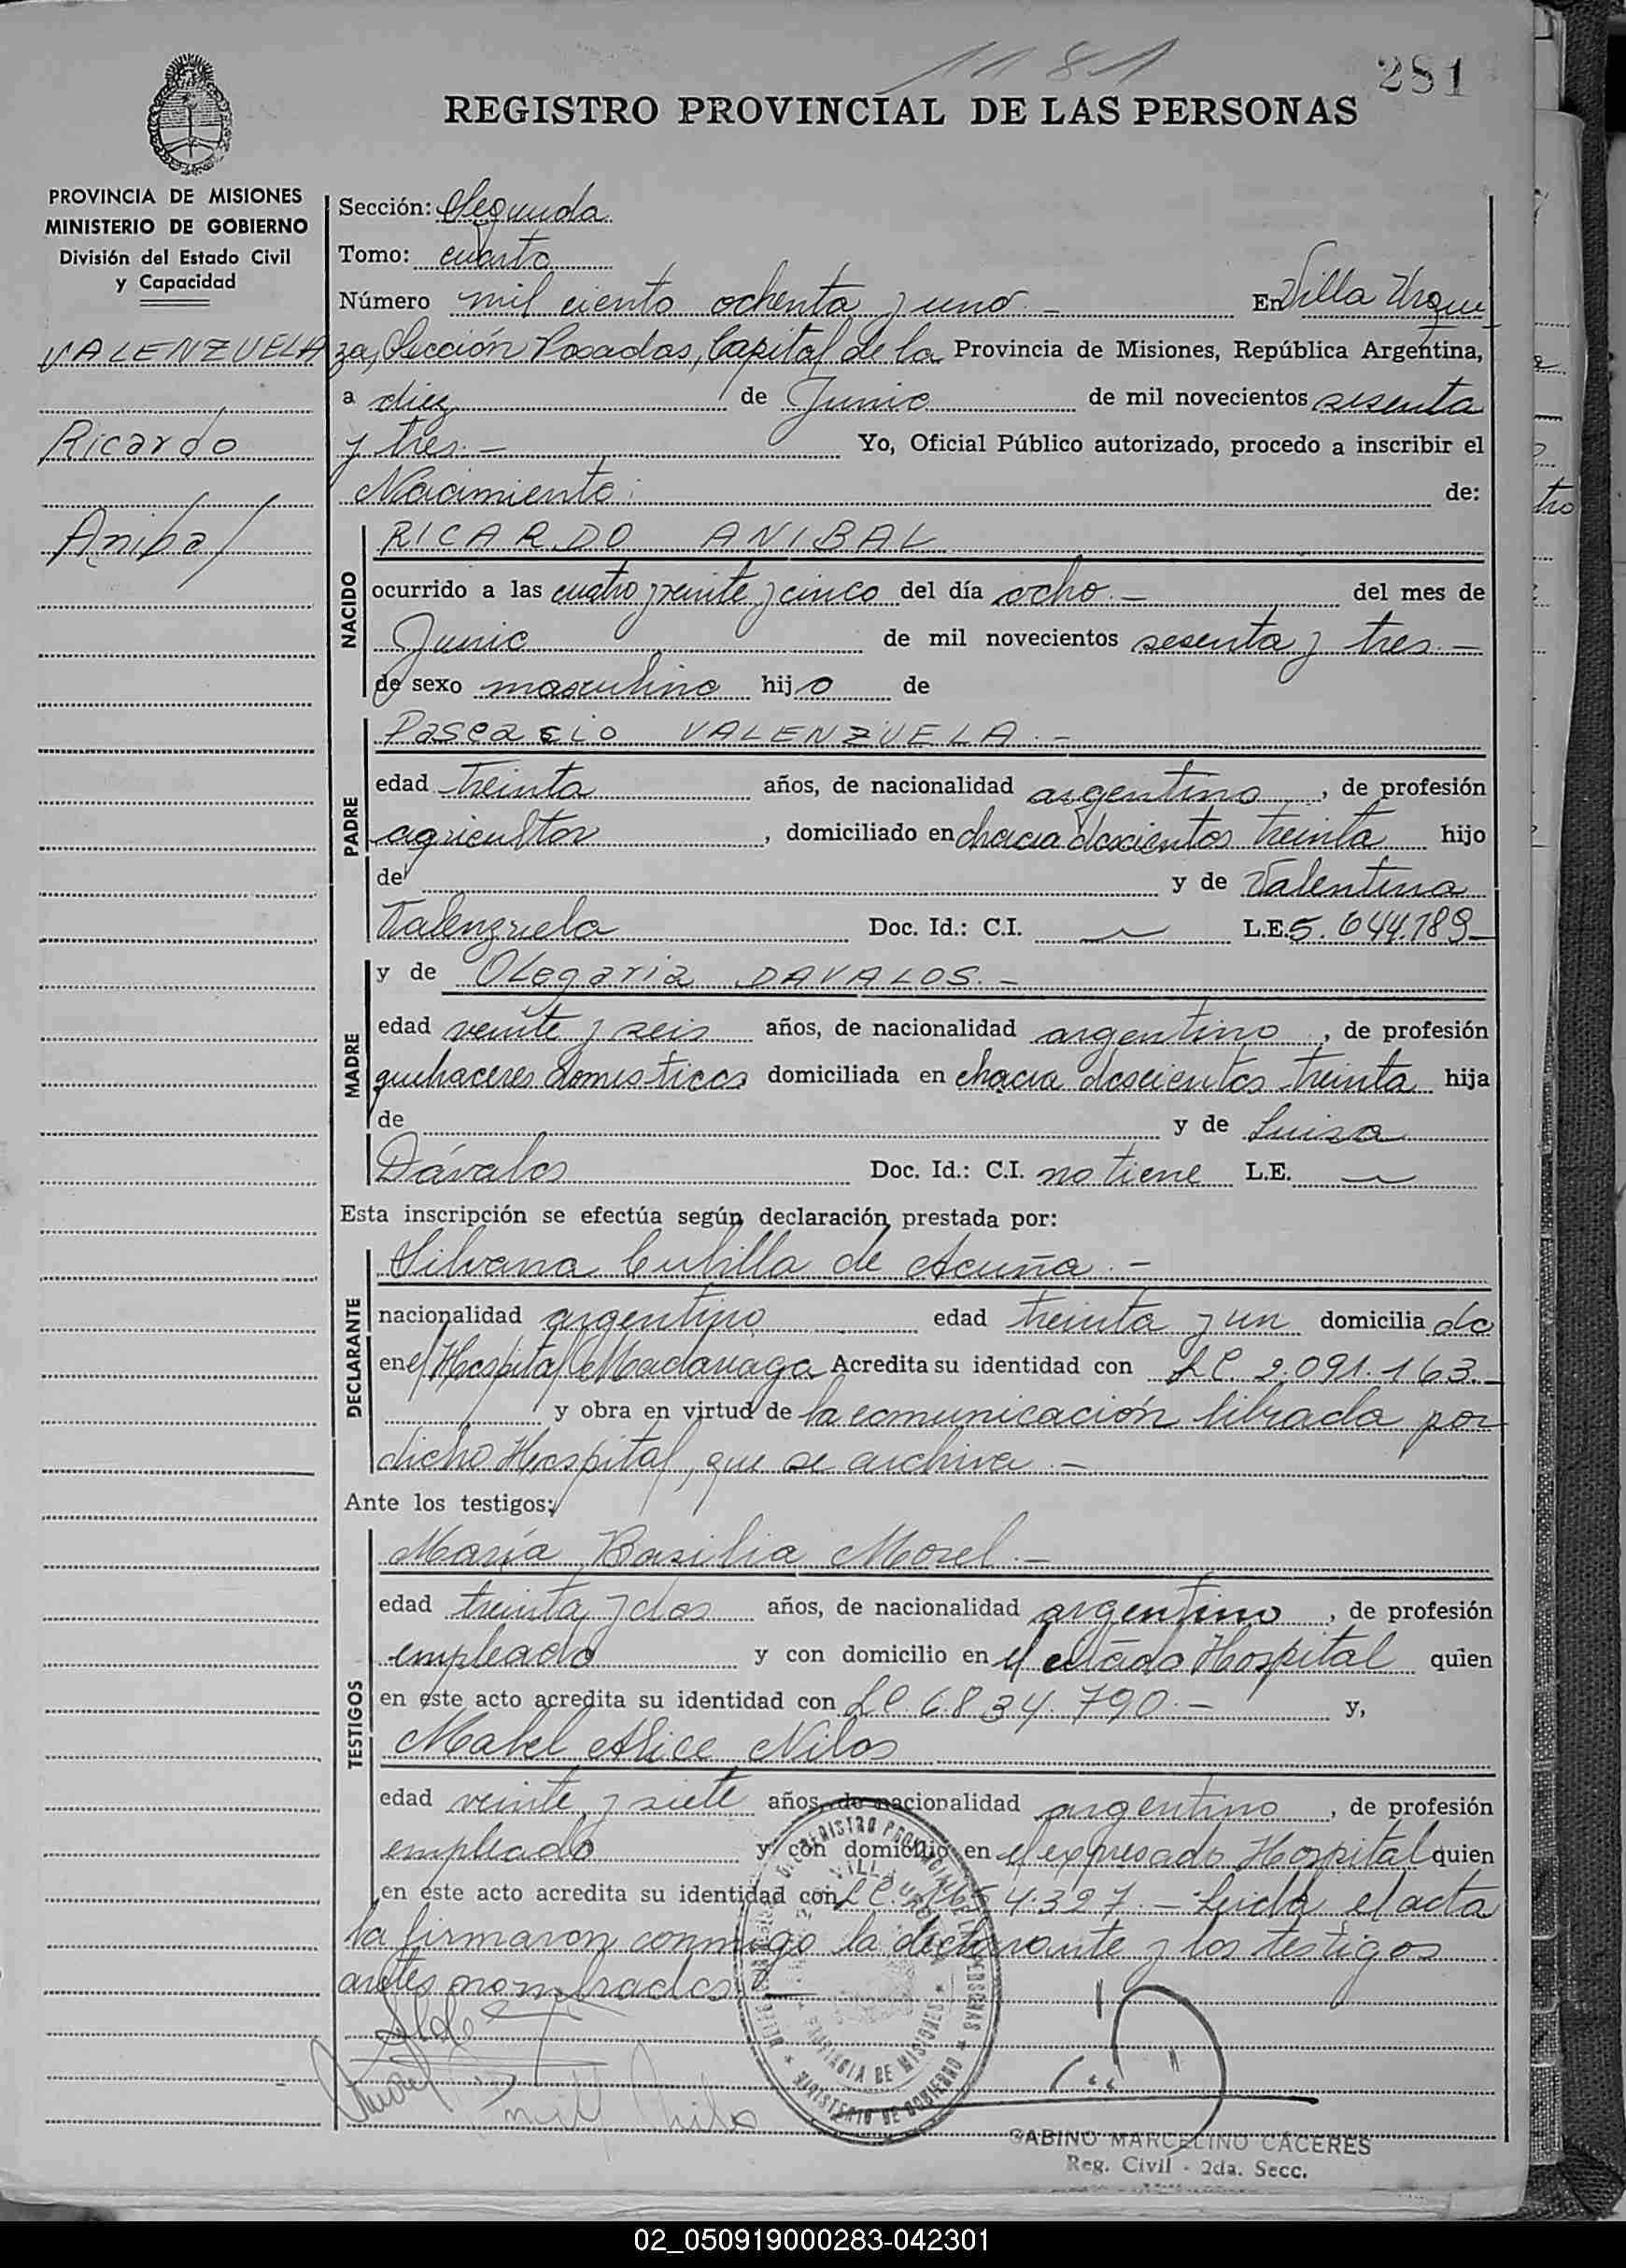 1181
281
REGISTRO PROVINCIAL DE LAS PERSONAS
PROVINCIA DE MISIONES
MINISTERIO DE GOBIERNO
División del Estado Civil
y Capacidad
VALENZUELA
Ricardo
Anibal
Sección: Segunda
Tomo: cuarto
Número mil ciento ochenta y uno.- En Villa Urqui
za, Sección Posadas, Capital de la Provincia de Misiones, República Argentina,
a diez de Junio de mil novecientos sesenta
y tres.- Yo, Oficial Público autorizado, procedo a inscribir el
Nacimiento de:
NACIDO
RICARDO ANIBAL
ocurrido a las cuatro y veinte y cinco del día ocho.- del mes de
Junio de mil novecientos sesenta y tres.-
de sexo masculino hijo de
PADRE
Pascacio VALENZUELA.-
edad treinta años, de nacionalidad argentino, de profesión
agricultor, domiciliado en chacra doscientos treinta hijo
de y de Valentina
Valenzuela Doc. Id.: C.I. L.E. 5.644.789-
MADRE
y de Olegaria DAVALOS.-
edad veinte y seis años, de nacionalidad argentino, de profesión
quehaceres domesticos domiciliada en chacra doscientos treinta hija
de y de Luisa
Dávalos Doc. Id.: C.I. no tiene L.E.
Esta inscripción se efectúa según declaración prestada por:
DECLARANTE
Silvana Cubilla de Acuña.-
nacionalidad argentino edad treinta y un domiciliado
en el Hospital Madariaga Acredita su identidad con LC 2.091.163.-
y obra en virtud de la comunicación librada por
dicho Hospital, que se archiva.-
Ante los testigos:
TESTIGOS
María Basilia Morel.-
edad treinta y dos años, de nacionalidad argentino, de profesión
empleado y con domicilio en el citado Hospital quien
en este acto acredita su identidad con LC. 6.834.790.- y,
Mabel Alice Nilos
edad veinte y siete años, de nacionalidad argentino, de profesión
empleado y con domicilio en el expresado Hospital quien
en este acto acredita su identidad con LC. 4.327.- Leida el acta
la firmaron conmigo la declarante y los testigos
antes nombrados.-
REGISTRO PROVINCIAL DE LAS PERSONAS
VILLA URQUIZA
PROVINCIA DE MISIONES
MINISTERIO DE GOBIERNO
GABINO MARCELINO CACERES
Reg. Civil - 2da. Secc.
02_050919000283-042301